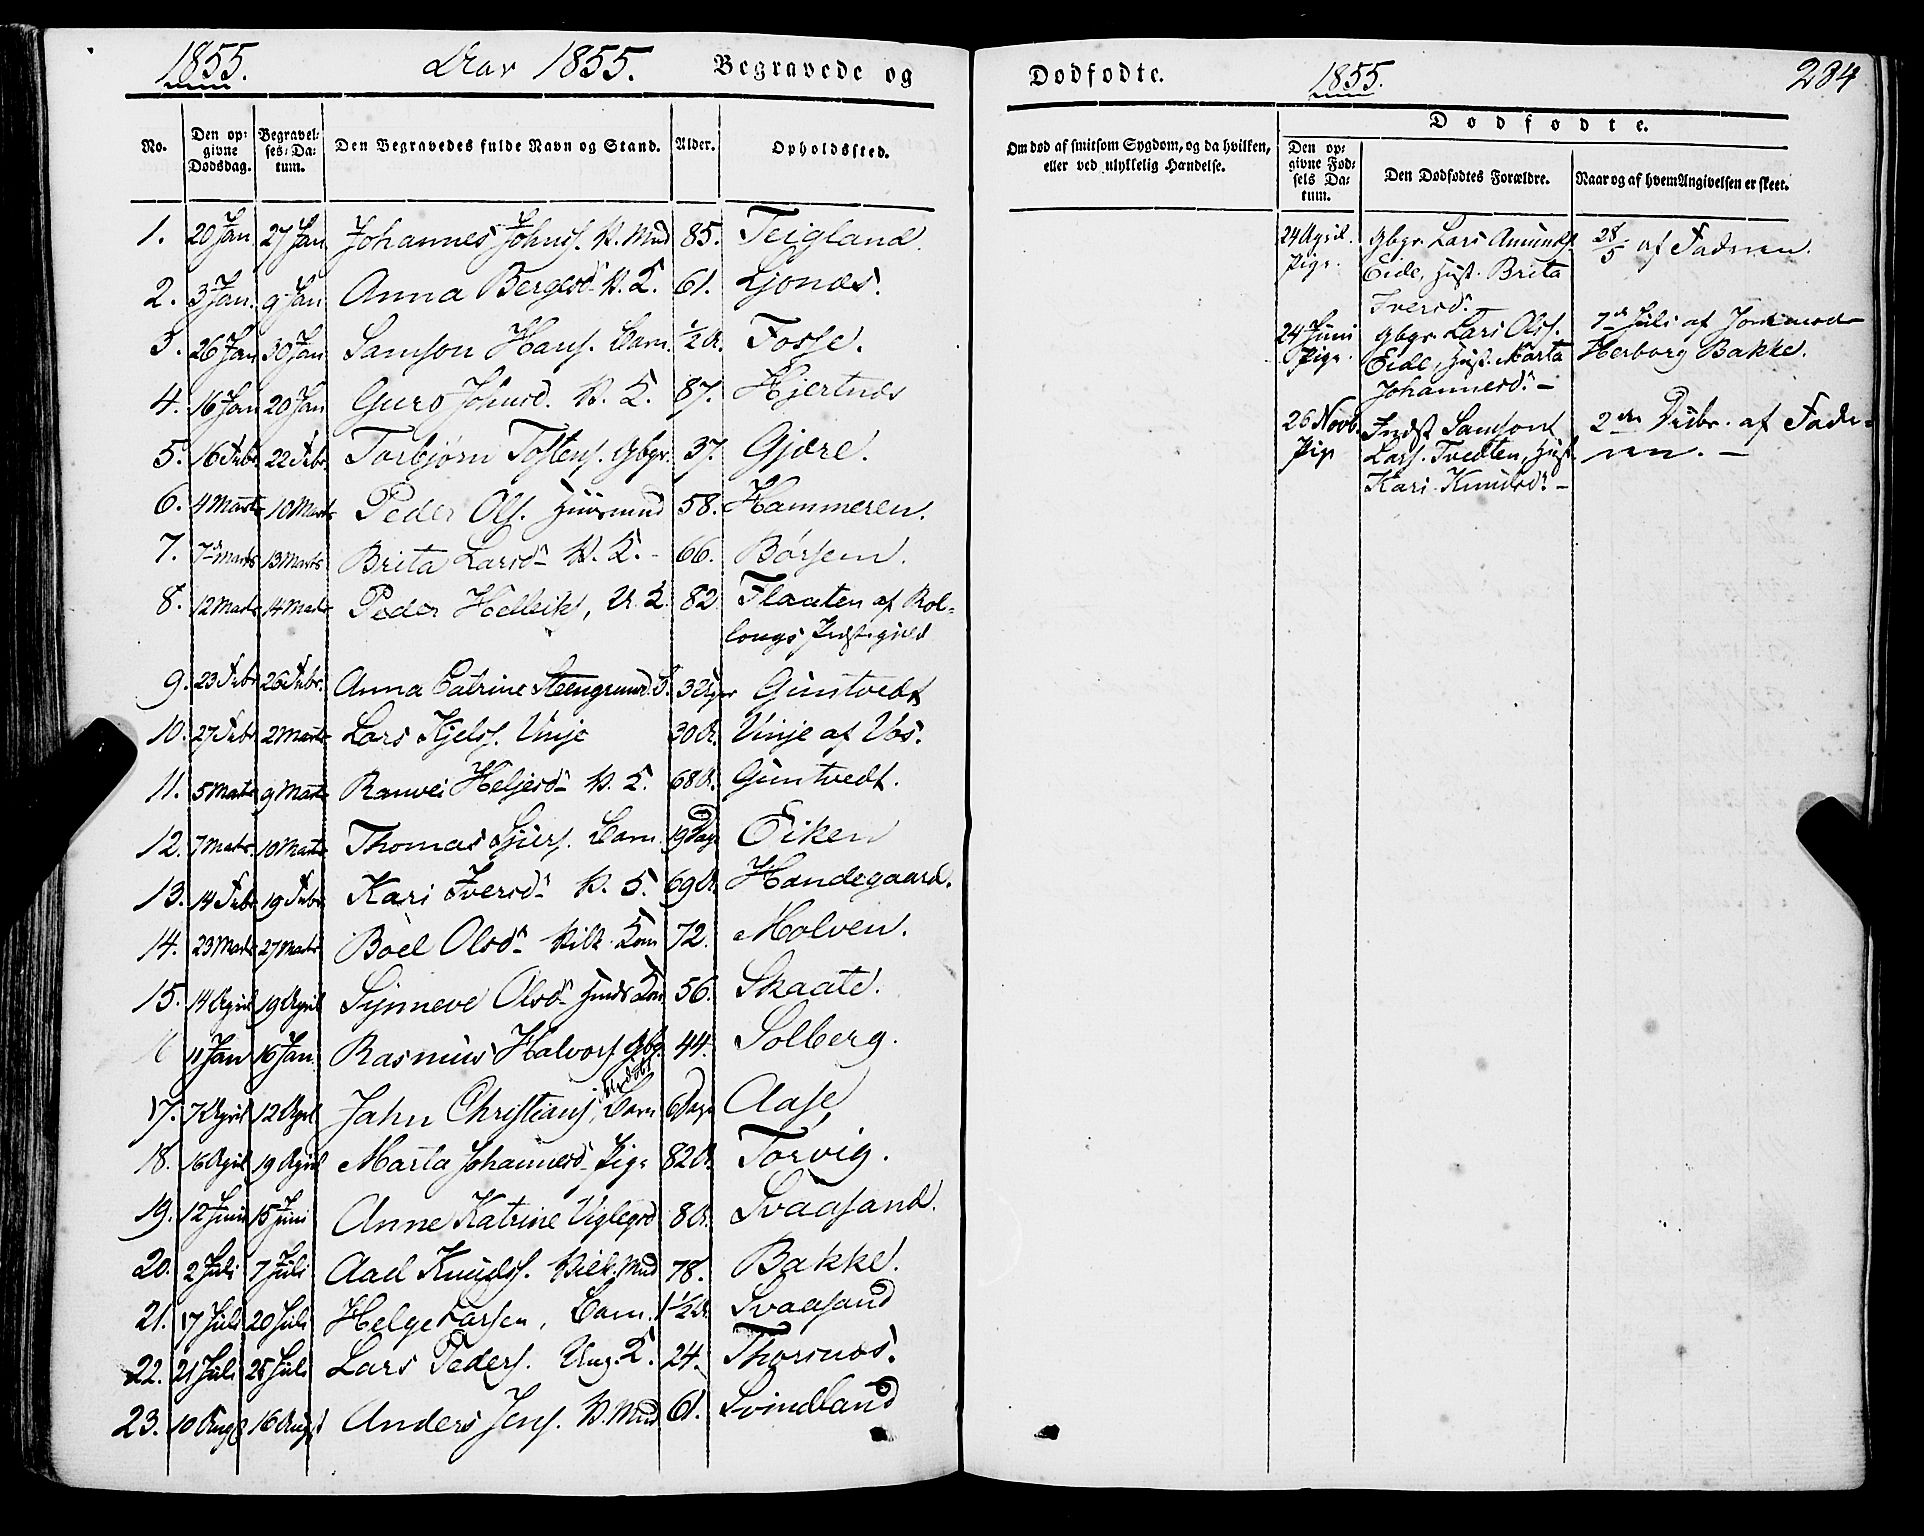 1855. Aar 1855. Begravede og
No. Den opgivne Dødsdag. Begravelses-Datum. Den Begravedes fulde Navn og Stand. Alder. Opholdssted.
1. 20 Jan 27 Jan Johannes Johns. K. Md 85. Teigland.
2. 3 Jan. 9 Jan Anna Bergesd. K. K. 61. Ljones.
3. 26 Jan 30 Jan Samson Hans. Barn. ½ A. Fosse.
4. 16 Jan 20 Jan Guro Johnsd. K. K. 87. Hjertnes
5. 16 Febr. 22 Febr. Torbjørn Tostens. Gbgr. 37. Gjære.
6. 4 Marts 10 Marts Peder Ols. Huusmnd 58. Hammeren.
7. 7de Marts 13 Marts Brita Larsd. K. K. 66. Børsem.
8. 12 Marts 14 Marts Peder Helleiks, U. K. 82 Flaaten af Rol-
longs Præstegield
9. 23 Febr 26 Febr. Anna Catrine Steengrimsd. B. 3 Uger Guntvedt
10. 27 Febr 2 Marts Lars Kjels. Vinje 30 A. Vinje af Vos.
11. 5 Marts 9 Marts Ranvei Heljesd. K. K. 68 A. Guntvedt.
12. 7 Marts. 10 Marts Thomas Sjurs. Barn 19 Dage Eiken
13. 14 Febr 19 Febr Kari Iversd. K. K. 69 A. Handegaard.
14. 23 Marts 27 Marts Boel Olsd. Kilk. Kone 72. Molven.
15. 14 April 19 April Synneve Olsd. Hmds Kone 56. Skaate.
11 Jan 16 Jan. Rasmus Halvors Gbg. 44. Solberg.
17. 7 April 12 April Jahn Christians, udøbt Barn 6 Dage Aase
18. 16 April 19 April Marta Johannesd. Pige 82 A. Torvig.
19. 12 Juni 15 Juni Anne Katrine Viglegsd 8 A. Svaasand.
20. 2 Juli 7 Juli Aad Knuds. Kilk. Md 78. Bakke.
21. 17 Juli 20 Juli Helge Larsen, Barn. 1½ A. Svaasand
22. 21 Juli 25 Juli Lars Peders. Ung. K. 24. Thorsnes.
23. 10 Aug 16 Aug Anders Jens. K. Md 61. Svindland
Dødfødte. 1855. 284
Om død af smitsom Sygdom, og da hvilken, eller ved ulykkelig Hændelse.
Dødfødte.
Den opgivne Fødsels Datum. Den Dødfødtes Forældre. Naar og af hvem Angivelsen er skeet.
24 April. Gbgr. Lars Amunds. 28/5 af Faderen.
Pige. Eide, Hust. Brita
Iversd.
24 Juni Gbgr. Lars Ols. 7de Juli af Jordemod
Pige. Eide, Hust. Marta Herborg Bakke.
Johannesd. -
26 Novb. Indst Samson 2den Decbr. af Fade-
Pige Lars. Tvedten, Hust. ren. -
Kari Knudsd. -